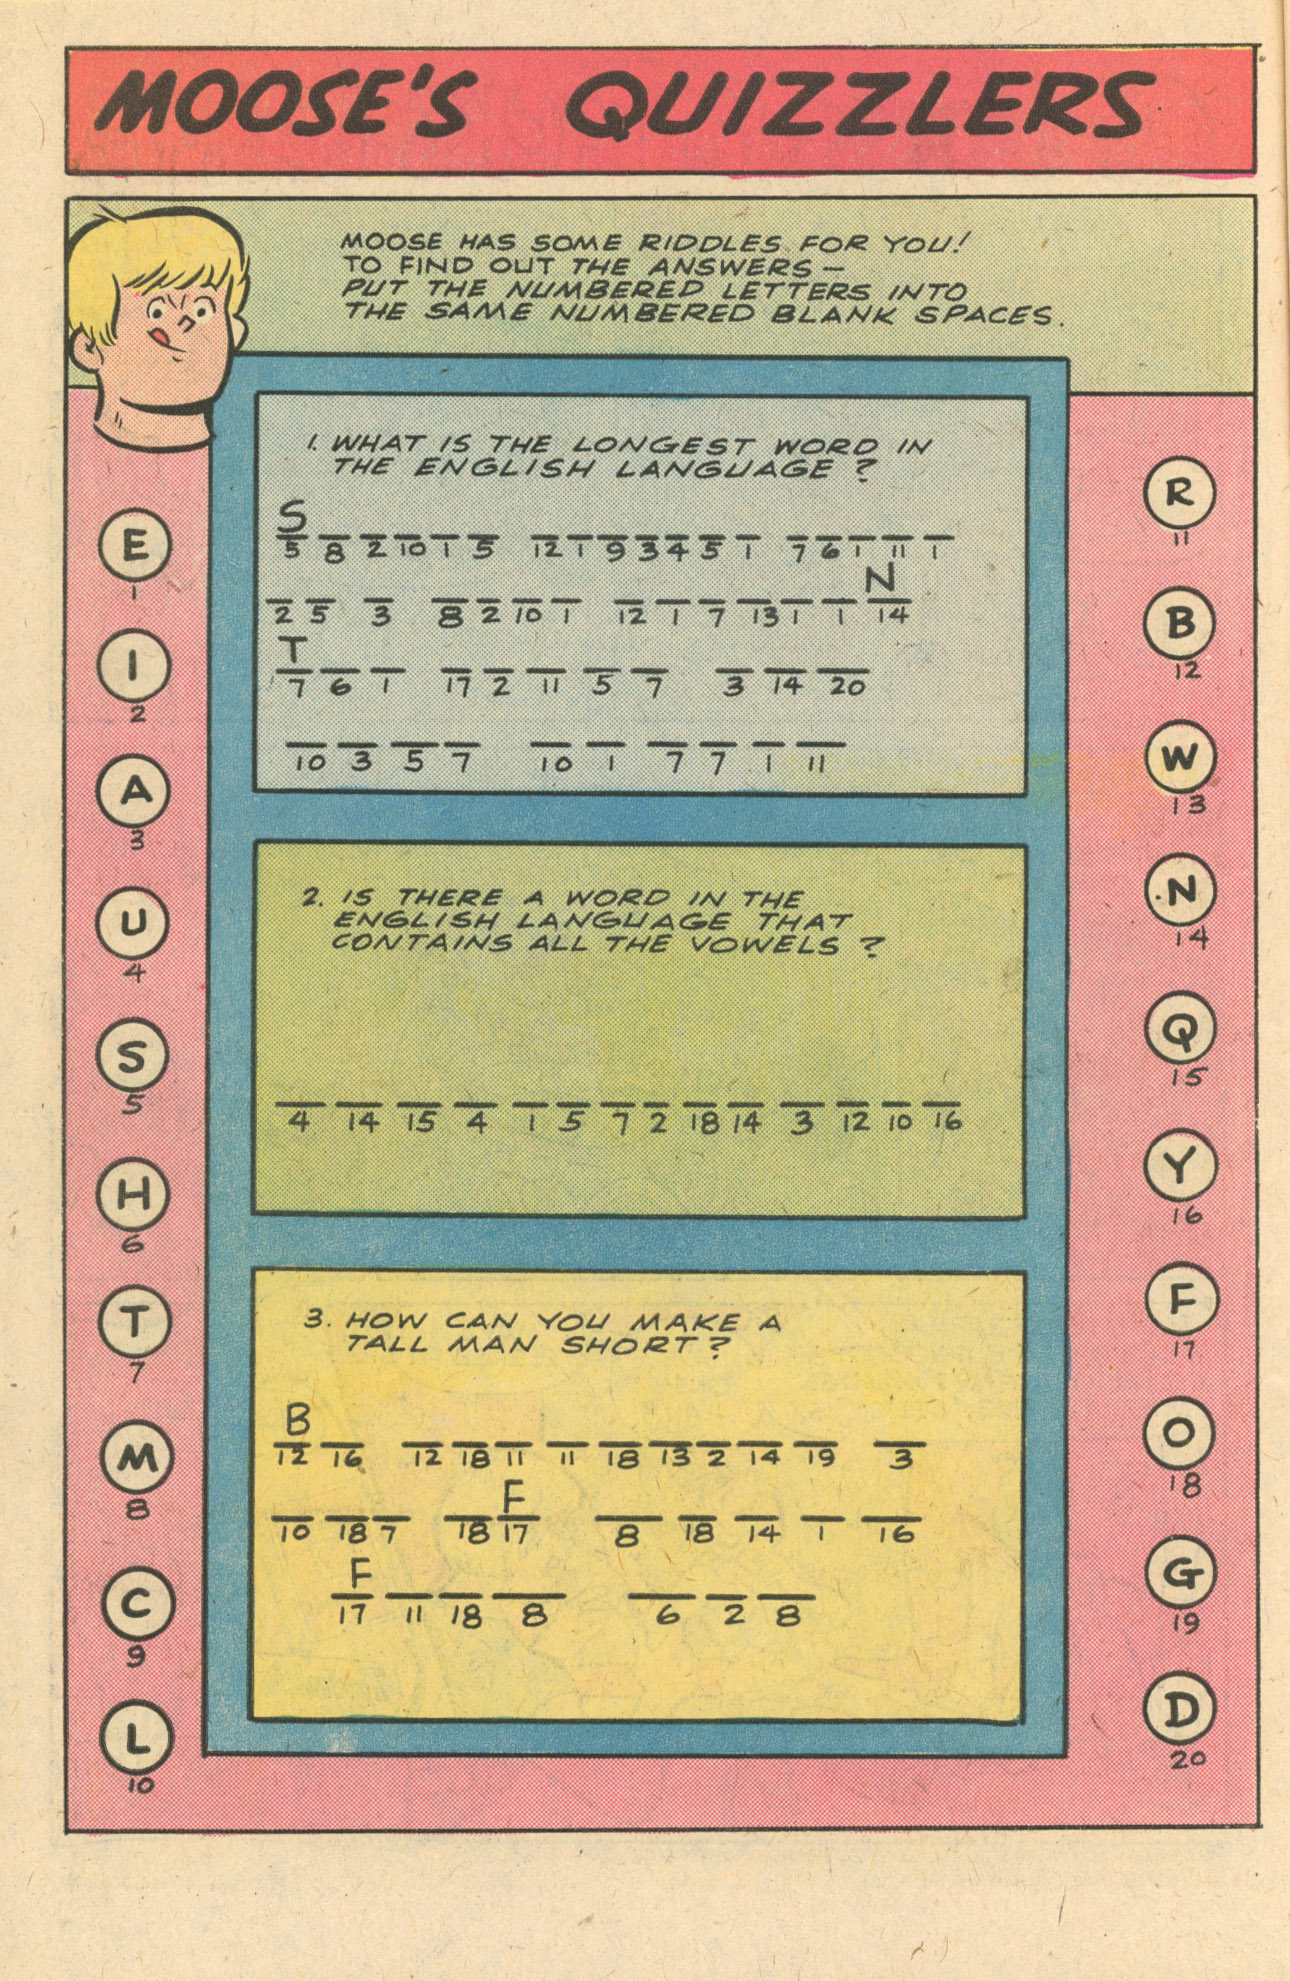 MOOSE'S QUIZZLERS
MOOSE HAS SOME RIDDLES FOR YOU!
TO FIND OUT THE ANSWERS—
PUT THE NUMBERED LETTERS INTO
THE SAME NUMBERED BLANK SPACES.
1. WHAT IS THE LONGEST WORD IN
THE ENGLISH LANGUAGE?
S
5 8 2 10 1 5 12 1 9 3 4 5 1 7 6 1 11 1
N
2 5 3 8 2 10 1 12 1 7 13 1 1 14
T
7 6 1 17 2 11 5 7 3 14 20
10 3 5 7 10 1 7 7 1 11
2. IS THERE A WORD IN THE
ENGLISH LANGUAGE THAT
CONTAINS ALL THE VOWELS?
4 14 15 4 1 5 7 2 18 14 3 12 10 16
3. HOW CAN YOU MAKE A
TALL MAN SHORT?
B
12 16 12 18 11 11 18 13 2 14 19 3
F
10 18 7 18 17 8 18 14 1 16
F
17 11 18 8 6 2 8
E
1
I
2
A
3
U
4
S
5
H
6
T
7
M
8
C
9
L
10
R
11
B
12
W
13
N
14
Q
15
Y
16
F
17
O
18
G
19
D
20